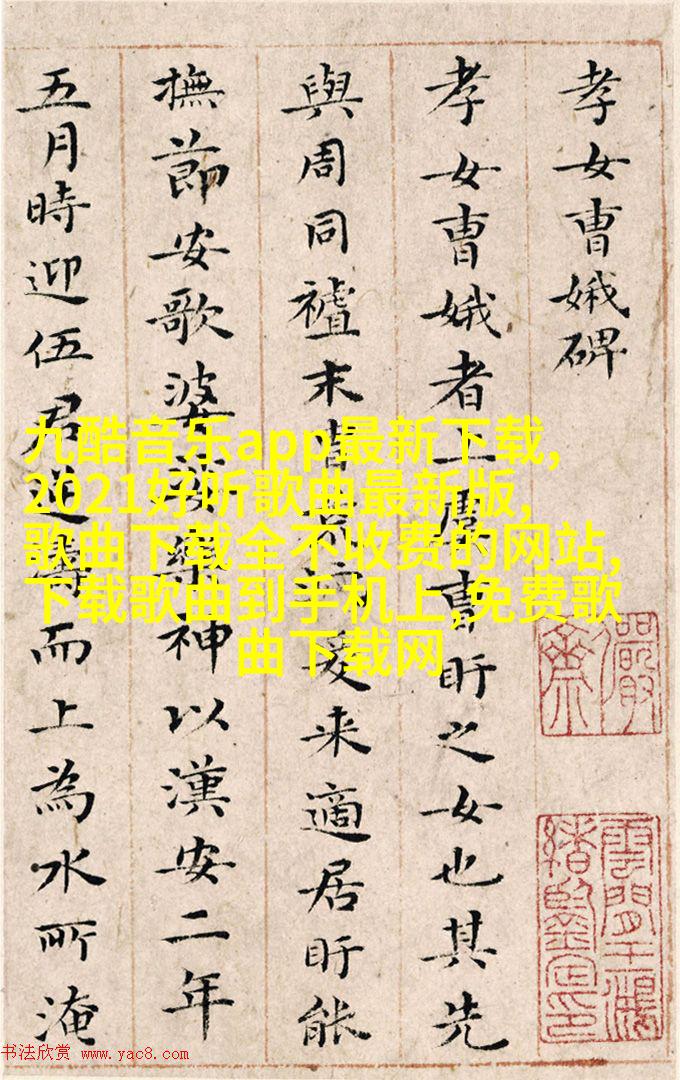 孝女曹娥碑
孝女曹娥者上虞曹盱之女也其先
與周同末爰来適居盱能
撫節安歌婆娑樂神以漢安二年
五月時迎伍君逆濤而上為水所淹
九酷音乐app最新下载,
2021好听歌曲最新版,
歌曲下载全不收费的网站,
下载歌曲到手机上,免费歌
曲下载网
儼齋
雲間王鴻緒鑒定印
书法欣赏 www.yac8.com